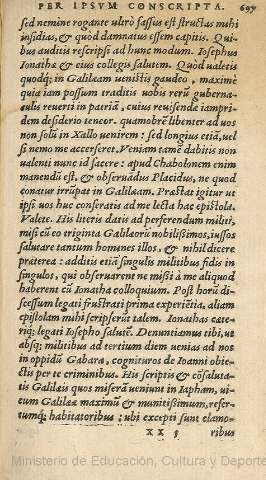 PER IPSVM CONSCRIPTA. 697
sed nemine rogante ultrò fassus est structas mihi
insidias, & quòd damnatus essem capitis. Qui-
bus auditis rescripsi ad hunc modum. Iosephus
Ionathæ & eius collegis salutem. Quòd ualetis
quodq; in Galilæam uenistis gaudeo, maximè
quia iam possum traditis uobis rerũ guberna-
culis reuerti in patriã, cuius reuisendæ iampri-
dem desiderio teneor. quamobrẽ libenter ad uos
non solũ in Xallo uenirem: sed longius etiã, uel
si nemo me accerseret. Veniam tamẽ dabitis non
ualenti nunc id facere: apud Chabolonem enim
manendũ est, & obseruãdus Placidus, ne quod
conatur irrũpat in Galilæam. Præstat igitur ut
ipsi uos huc conferatis ad me lecta hac epistola.
Valete. His literis datis ad perferendum militi,
misi cũ eo triginta Galilæorũ nobilissimos, iussos
salutare tantum homines illos, & nihil dicere
præterea: additis etiã singulis militibus fidis in
singulos, qui obseruarent ne missi à me aliquod
haberent cũ Ionatha colloquium. Post horũ di-
scessum legati frustrati prima experiẽtia, aliam
epistolam mihi scripserũt talem. Ionathas cæte-
riq; legati Iosepho salutẽ. Denuntiamus tibi, ut
absq; militibus ad tertium diem uenias ad nos
in oppidũ Gabara, cognituros de Ioanni obie-
ctis per te criminibus. His scriptis & cõsaluta-
tis Galilæis quos miserã ueniunt in Iapham, ui-
cum Galilææ maximũ & munitissimum, refer-
tumq; habitatoribus: ubi excepti sunt clamo-
XX 5 ribus
Ministerio de Educación, Cultura y Deporte